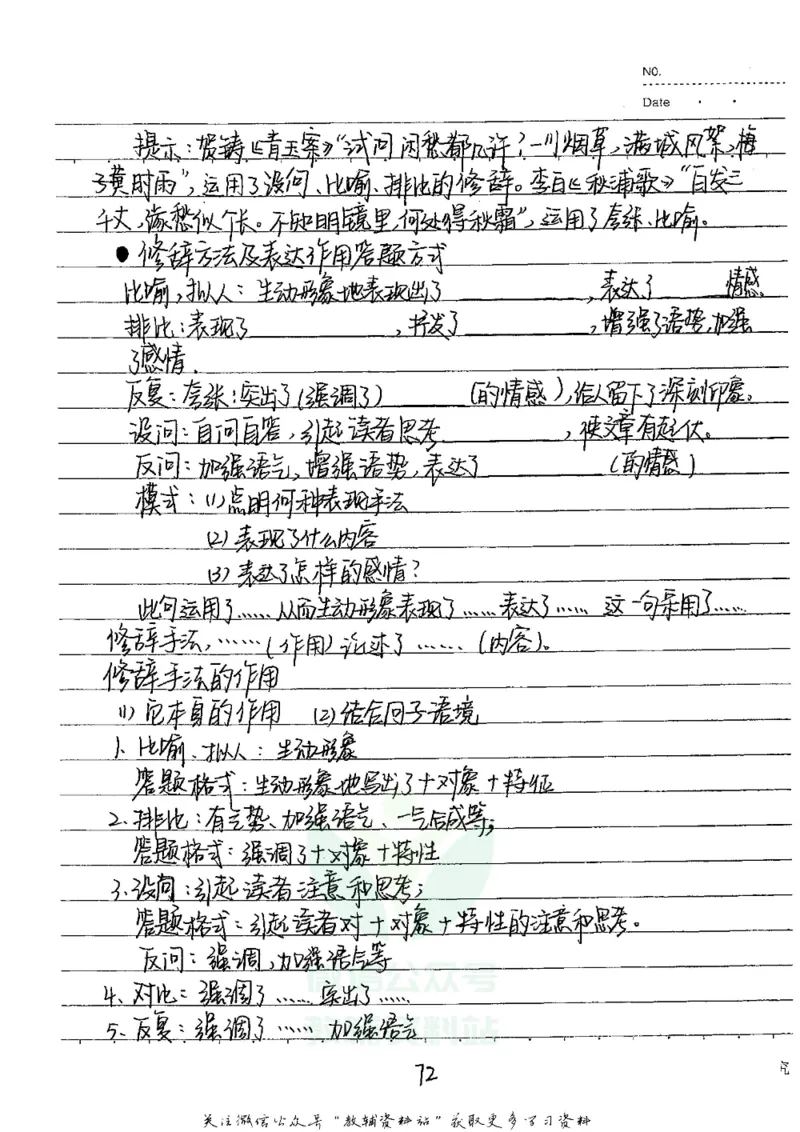 NO.
Date
提示:贺铸《青玉案》“试问闲愁都几许?一川烟草,满城风絮,梅
子黄时雨”,运用了设问、比喻、排比的修辞。李白《秋浦歌》“白发三
千丈,缘愁似个长。不知明镜里,何处得秋霜”,运用了夸张、比喻。
●修辞方法及表达作用答题方式
比喻,拟人:生动形象地表现出了________,表达了____情感
排比:表现了________,抒发了________,增强了语势,加强
了感情.
反复:夸张:突出了(强调了)______(的情感),给人留下了深刻印象。
设问:自问自答,引起读者思考________,使文章有起伏。
反问:加强语气,增强语势,表达了________(的情感)
模式:(1)点明何种表现手法
(2)表现了什么内容
(3)表达了怎样的感情?
此句运用了……从而生动形象表现了……表达了…… 这一句采用了……
修辞手法,……(作用)论述了……(内容)。
修辞手法的作用
(1)它本身的作用 (2)结合句子语境
1、比喻、拟人:生动形象
答题格式:生动形象地写出了+对象+特征
2、排比:有气势、加强语气、一气呵成等;
答题格式:强调了+对象+特性
3.设问:引起读者注意和思考;
答题格式:引起读者对+对象+特性的注意和思考。
反问:强调,加强语气等
4、对比:强调了……突出了……
5、反复:强调了…… 加强语气
微信公众号
教辅资料站
72
关注微信公众号“教辅资料站”获取更多学习资料